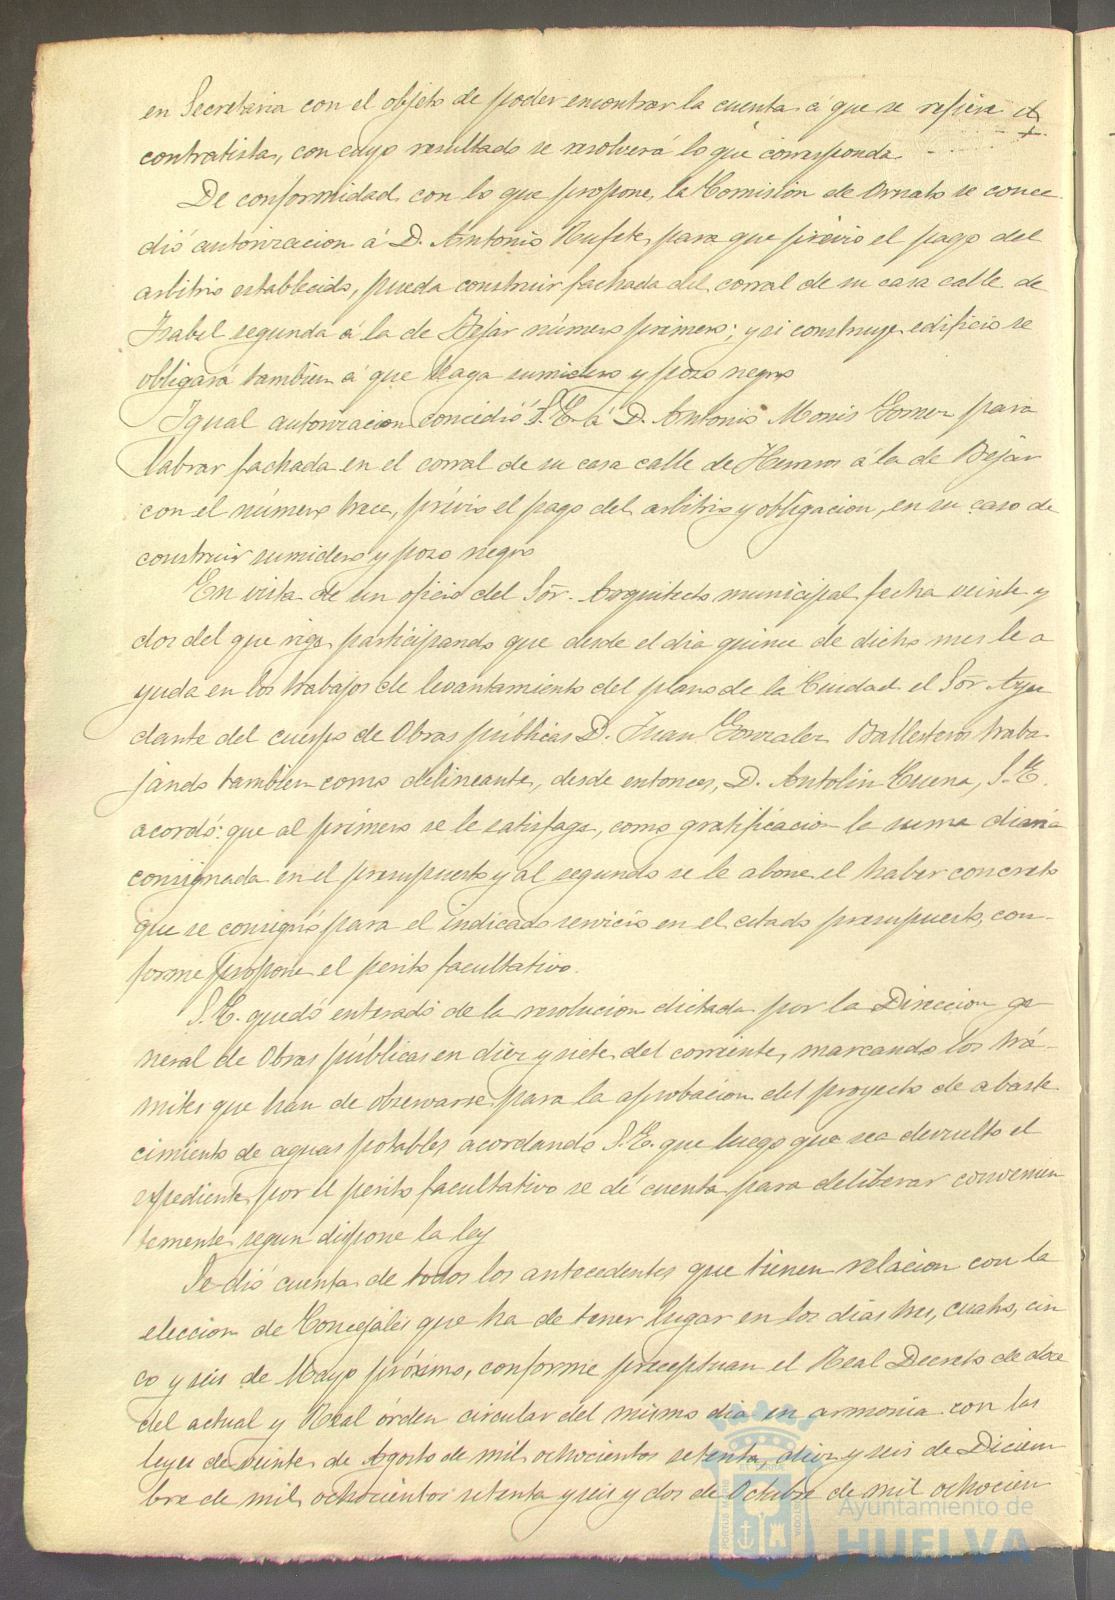 en Secretaria con el objeto de poder encontrar la cuenta á que se refiere el
contratista, con cuyo resultado se resolverá lo que corresponda.
De conformidad con lo que propone la Comision de Ornato se conce
dió autorizacion á D. Antonio Rufete, para que prévio el pago del
arbitrio establecido, pueda construir fachada del corral de su casa calle de
Isabel segunda á la de Bejar número primero; y si construye edificio se
obligará tambien á que haga sumidero y pozo negro
Igual autorizacion concedió S.E. á D. Antonio Monis Gomez para
labrar fachada en el corral de su casa calle de Herreros á la de Bejar
con el número trece, prévio el pago del arbitrio y obligacion, en su caso de
construir sumidero y pozo negro
En vista de un oficio del Sor. Arquitecto municipal fecha veinte y
dos del que rige participando que desde el dia quince de dicho mes le a
yuda en los trabajos de levantamiento del plano de la Ciudad el Sor. Ayu
dante del cuerpo de Obras públicas D. Juan Gonzalez Ballesteros traba-
jando tambien como delineante, desde entonces, D. Antolin Lucena, S.E.
acordó: que al primero se le satisfaga, como gratificacion la suma diaria
consignada en el presupuesto y al segundo se le abone el haber concreto
que se consignó para el indicado servicio en el citado presupuesto, con-
forme propone el perito facultativo.
S.E. quedó enterado de la resolucion dictada por la Direccion ge
neral de Obras públicas en diez y siete del corriente, marcando los trá-
mites que han de observarse para la aprobacion del proyecto de abaste
cimiento de aguas potables acordando S.E. que luego que sea devuelto el
espediente por el perito facultativo se dé cuenta para deliberar convenien
temente segun dispone la ley
Se dió cuenta de todos los antecedentes que tienen relacion con la
eleccion de Concejales que ha de tener lugar en los dias tres, cuatro, cin
co y seis de Mayo próximo, conforme preceptuan el Real Decreto de doce
del actual y Real órden circular del mismo dia en armonia con las
leyes de veinte de Agosto de mil ochocientos setenta, diez y seis de Diciem
bre de mil ochocientos setenta y seis y dos de Octubre de mil ochocien
Ayuntamiento de
HUELVA